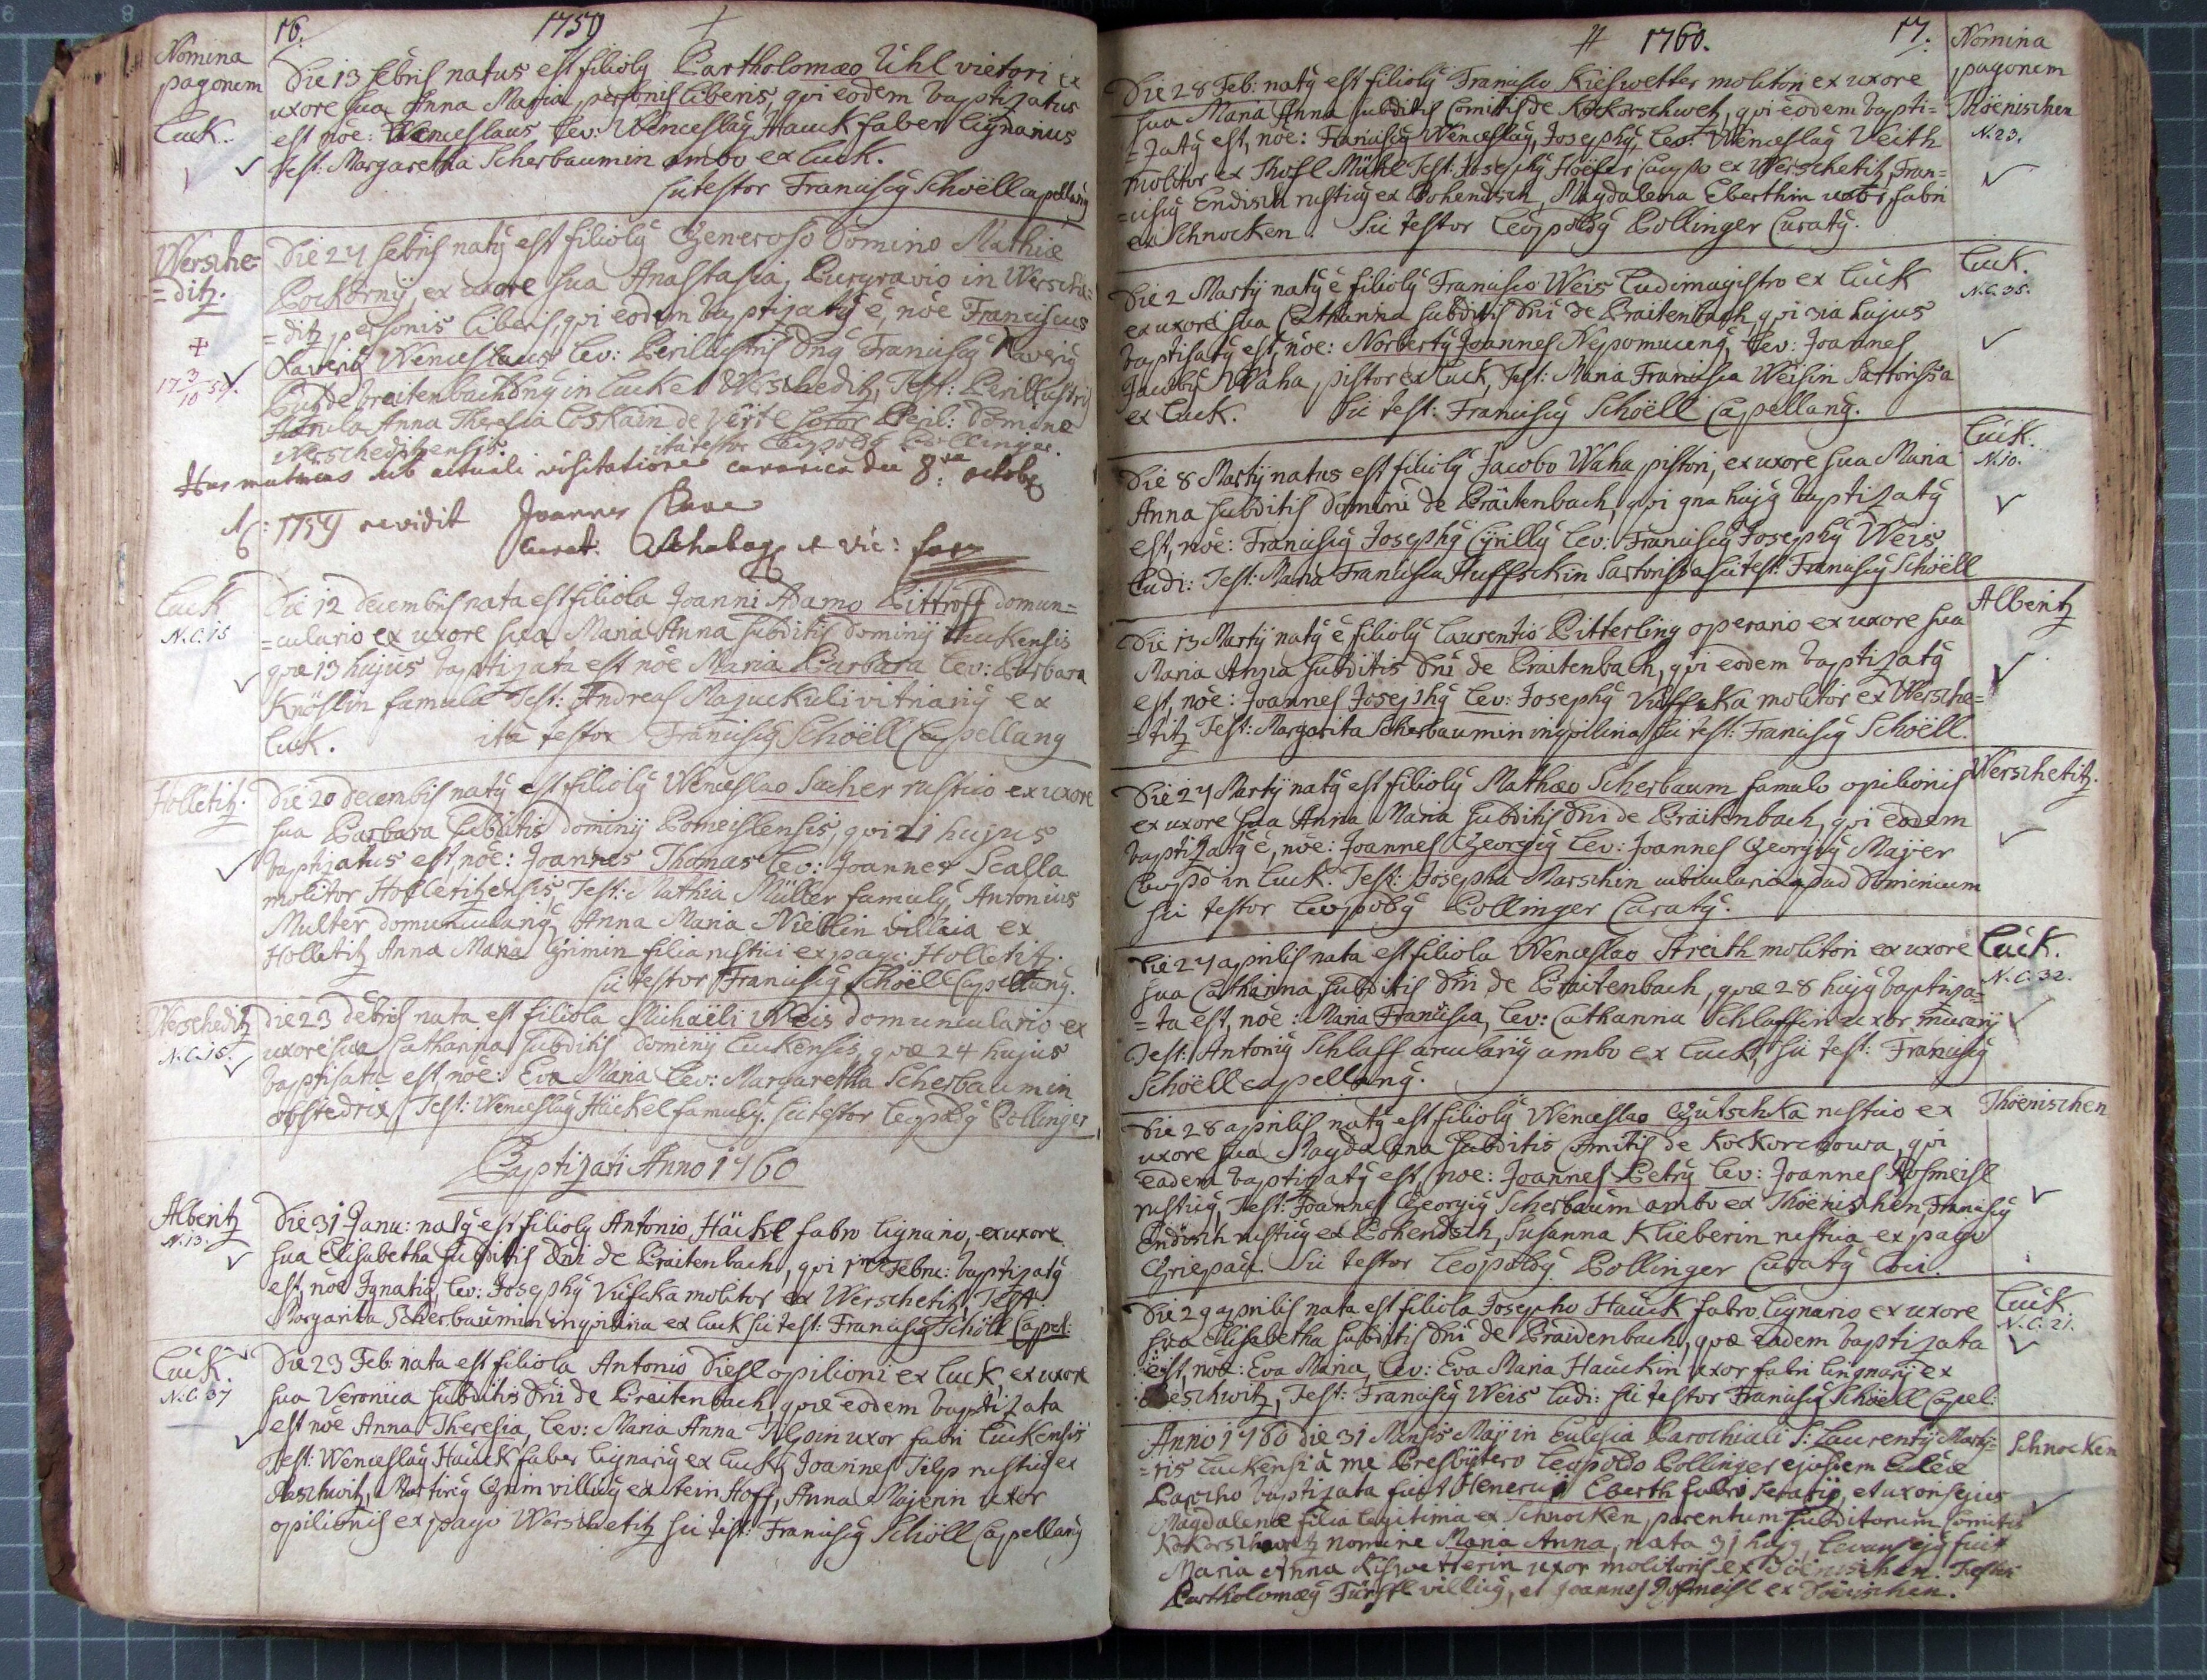 16. 1759
Nomina
pagonem
Luck.
Die 13 febris natus est filioly Bartholomæo Uhl vietori ex
uxore sua Anna Maria personis liberis, qvi eodem baptizatus
est noe: Wenceslaus Lev: Wenceslaÿ Hauck faber lignarius
Test: Margaretha Scherbaumin ambo ex Luck.
Franciscÿ Schoëll capellanÿ
Wersche=
=ditz.
Die 24 febris natÿ est filiolÿ Generoso Domino Mathiæ
Pockornÿ, ex uxore sua Anastasia, Burgravio in Wersche=
=ditz personis liberis, qvi eodem baptizatÿ ē, nōe Franciscus
Xaveriÿ Wenceslaus Lev: Perillustris Dnÿ Franciscÿ Xaveriÿ
de breitenbach Dnÿ in Luck et Werscheditz, Test: Perillustris
Anna Theresia soror Peril: Domini
Werscheditzensis. ita testor
Has matricas sub actuali visitatione canonica die 8va octobr
1759 revidit Joannes
Curat. et vic:
Luck
N.C. 15
Die 12 decembris nata est filiola Joanni Adamo Pittroff domun=
=culario ex uxore sua Maria Anna subditis dominÿ Luckensis
qvæ 13 hujus baptizata est nōe Maria Barbara Lev: Barbara
Knöslin famula Test: Andreas vitriariÿ ex
Luck. ita testor Franciscÿ Schoëll Capellanÿ
Holletitz.
Die 20 decembris natÿ est filiolÿ Wenceslao Sucher rustico ex uxore
sua Barbara subditis dominÿ Pomeislensis, qvi 21 hujus
baptizatus est, nōe: Joannes Thomas Lev: Joannes Scalla
molitor Holletitzensis, Test: Mathia Müller famulÿ, Antonius
Multer domuncularÿ, Anna Maria villica ex
Holletitz Anna Maria Grimin filia rustici ex pago Holletitz.
sic testor Franciscÿ Schoëll Capellanÿ.
Werscheditz
N.C. 15.
Die 23 debris nata est filiola Michaëli Weis domunculario ex
uxore sua Catharina subditis dominÿ Luckensis, qvæ 24 hujus
baptisata est nōe: Eva Maria Lev: Margaretha Scherbaumin
obstedrix, Test: Wenceslaÿ Häckel famulÿ. sic testor Leopoldÿ Pollinger
Baptizati Anno 1760
Alberitz
N. 13.
Die 31 Janu: natÿ est filiolÿ Antonio Häckl fabro lignario, ex uxore
sua Elisabetha subditis Dni de Braitenbach, qvi 1ma Febru: baptizatÿ
est, nōe Ignatiÿ, Lev: Josephÿ molitor ex Werschetitz, Test:
Margarita Scherbaumin inqvilina ex Luck sic test: Franciscÿ Schöll Capel:
Luck.
N.C. 37
Die 23 Feb: nata est filiola Antonio Diesl opilioni ex Luck ex uxore
sua Veronica subditis Dni de Breitenbach, qvæ eodem baptizata
est noe Anna Theresia, Lev: Maria Anna uxor fabri Luckensis
Test: Wenceslaÿ Hauck faber lignariÿ ex Luck, Joannes Tilp rusticÿ ex
Reschwitz, Martinÿ Grim villicÿ ex Stein Hoff, Anna Majerin uxor
opilionis ex pago Werschetitz sic test: Franciscÿ Schöll Capellanÿ
1760. 17.
Nomina
pagonem
Thöenischen
N. 23.
Die 28 Feb: natÿ est filiolÿ Francisco Kieswetter molitori ex uxore
sua Maria Anna subditis Comitis de Kockorschwetz, qvi eodem bapti=
=zatÿ est, nōe: Franciscÿ Wenceslaÿ, Josephÿ, Lev: Wenceslaÿ Veith
molitor ex Thosl Mühl Test: Josephÿ Höefer ex Werschetitz, Fran=
=ciscÿ Endisch rusticÿ ex Pohentsch, Magdalena Eberthin uxor fabri
ex Schnocken. Sic testor Leopoldÿ Pollinger Curatÿ.
Luck.
N.C. 35.
Die 2 Martÿ natÿ ē filiolÿ Francisco Weis Ludimagistro ex Luck
ex uxore sua Catharina subditis Dni de Braitenbach, qvi 3ia hujus
baptisatÿ est, nōe: Norbertÿ Joannes Nepomucenÿ, Lev: Joannes
Jacobÿ Waha, pistor ex Luck, Test: Maria Francisca Weisin Sartorissa
ex Luck. Sic test: Franciscÿ Schöell Capellanÿ.
Luck.
N. 10.
Die 8 Martÿ natus est filiolÿ Jacobo Waha pistori, ex uxore sua Maria
Anna subditis Domini de Bräitenbach, qvi 9na hujÿ baptizatÿ
est, nōe: Franciscÿ Josephÿ Cÿrillÿ Lev: Franciscÿ Josephÿ Weis
Ludi: Test: Maria Francisca Sartorissa sic test: Franciscÿ Schöell
Alberitz
Die 13 Martÿ natÿ ē filiolÿ Laurentio Pitterling operario ex uxore sua
Maria Anna subditis Dni de Braitenbach, qvi eodem baptizatÿ
est, nōe: Joannes Josephÿ Lev: Josephÿ molitor ex Wersche=
=titz Test: Margarita Scherbaumin inqvilina sic test: Franciscÿ Schöell.
Werschetitz.
Die 24 Martÿ natÿ est filiolÿ Mathæo Scherbaum famulo opilionis
ex uxore sua Anna Maria subditis Dni de Bräitenbach, qvi eodem
baptizatÿ ē, nōe: Joannes Georgiÿ Lev: Joannes Georgiÿ Majer
in Luck. Test: Josepha Marschin cubicularia apud Dominium
sic testor Leopoldÿ Pollinger Curatÿ.
Luck.
N.C. 32.
Die 24 aprilis nata est filiola Wenceslao Streith molitori ex uxore
sua Catharina subditis Dni de Braitenbach, qvæ 28 hujÿ baptiza=
=ta est, nōe: Maria Francisca, Lev: Catharina Schlaffin uxor murarÿ
Test: Antoniÿ Schlaff arculariÿ ambo ex Luck, sic test: Franciscÿ
Schöell capellanÿ.
Thöenischen
Die 28 aprilis natÿ est filiolÿ Wenceslao Gutschka rustico ex
uxore sua Magdalena subditis Comitis de Kockorczowa, qvi
eadem baptizatÿ est, noe: Joannes Petrÿ Lev: Joannes Hofmeisl
rusticÿ, Test: Joannes Georgiÿ Scherbaum ambo ex Thöenischen, Franciscÿ
Endisch rusticÿ ex Pohentsch, Susanna Klieberin rustica ex pago
Griepau. Sic testor Leopoldÿ Pollinger Curatÿ loci.
Luck.
N.C. 21.
Die 29 aprilis nata est filiola Josepho Hauck fabro lignario ex uxore
sua Elisabetha subditis Dni de Braidenbach, qvæ eadem baptizata
est, noe: Eva Maria, Lev: Eva Maria Hauckin uxor fabri lingnarÿ ex
Reschwitz, Test: Franciscÿ Weis Ludi: sic testor Franciscÿ Schöell Capel:
Schnocken
Anno 1760 die 31 Mensis Maÿ in Eulesia Parochiali S: Laurentÿ Marty=
=ris Luckensi à me Presbÿtero Leopoldo Pollinger ejusdem
Parocho baptizata fuit Eberth fabro ferario, et uxoris ejus
Magdalenæ filia legitima ex Schnocken, parentum subditorum Comitis
Kokorschowetz nomine Maria Anna, nata 31 hujÿ, Levans ejÿ fuit
Maria Anna Kiswetterin uxor molitoris ex Döenischen. Testes
Bartholomæÿ Fürstl villicÿ, et Joannes Hofmeisl ex Dönischen.